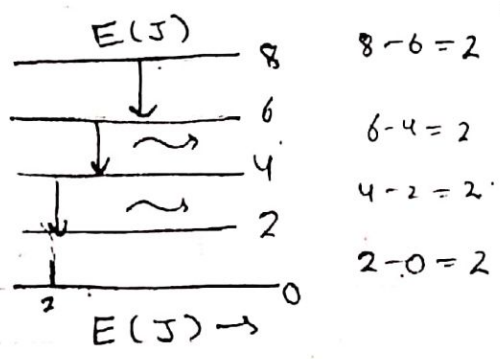 E(J)
8
6
4
2
0
2
E(J) →
8-6=2
6-4=2
4-2=2
2-0=2